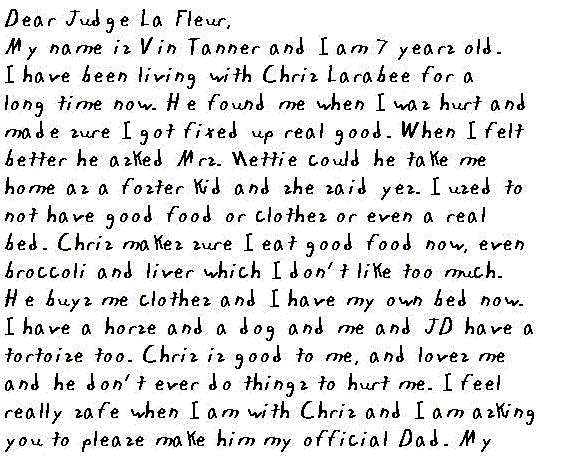 Dear Judge La Fleur,
My name is Vin Tanner and I am 7 years old.
I have been living with Chris Larabee for a
long time now. He found me when I was hurt and
made sure I got fixed up real good. When I felt
better he asked Mrs. Nettie could he take me
home as a foster kid and she said yes. I used to
not have good food or clothes or even a real
bed. Chris makes sure I eat good food now, even
broccoli and liver which I don't like too much.
He buys me clothes and I have my own bed now.
I have a horse and a dog and me and JD have a
tortoise too. Chris is good to me, and loves me
and he don't ever do things to hurt me. I feel
really safe when I am with Chris and I am asking
you to please make him my official Dad. My